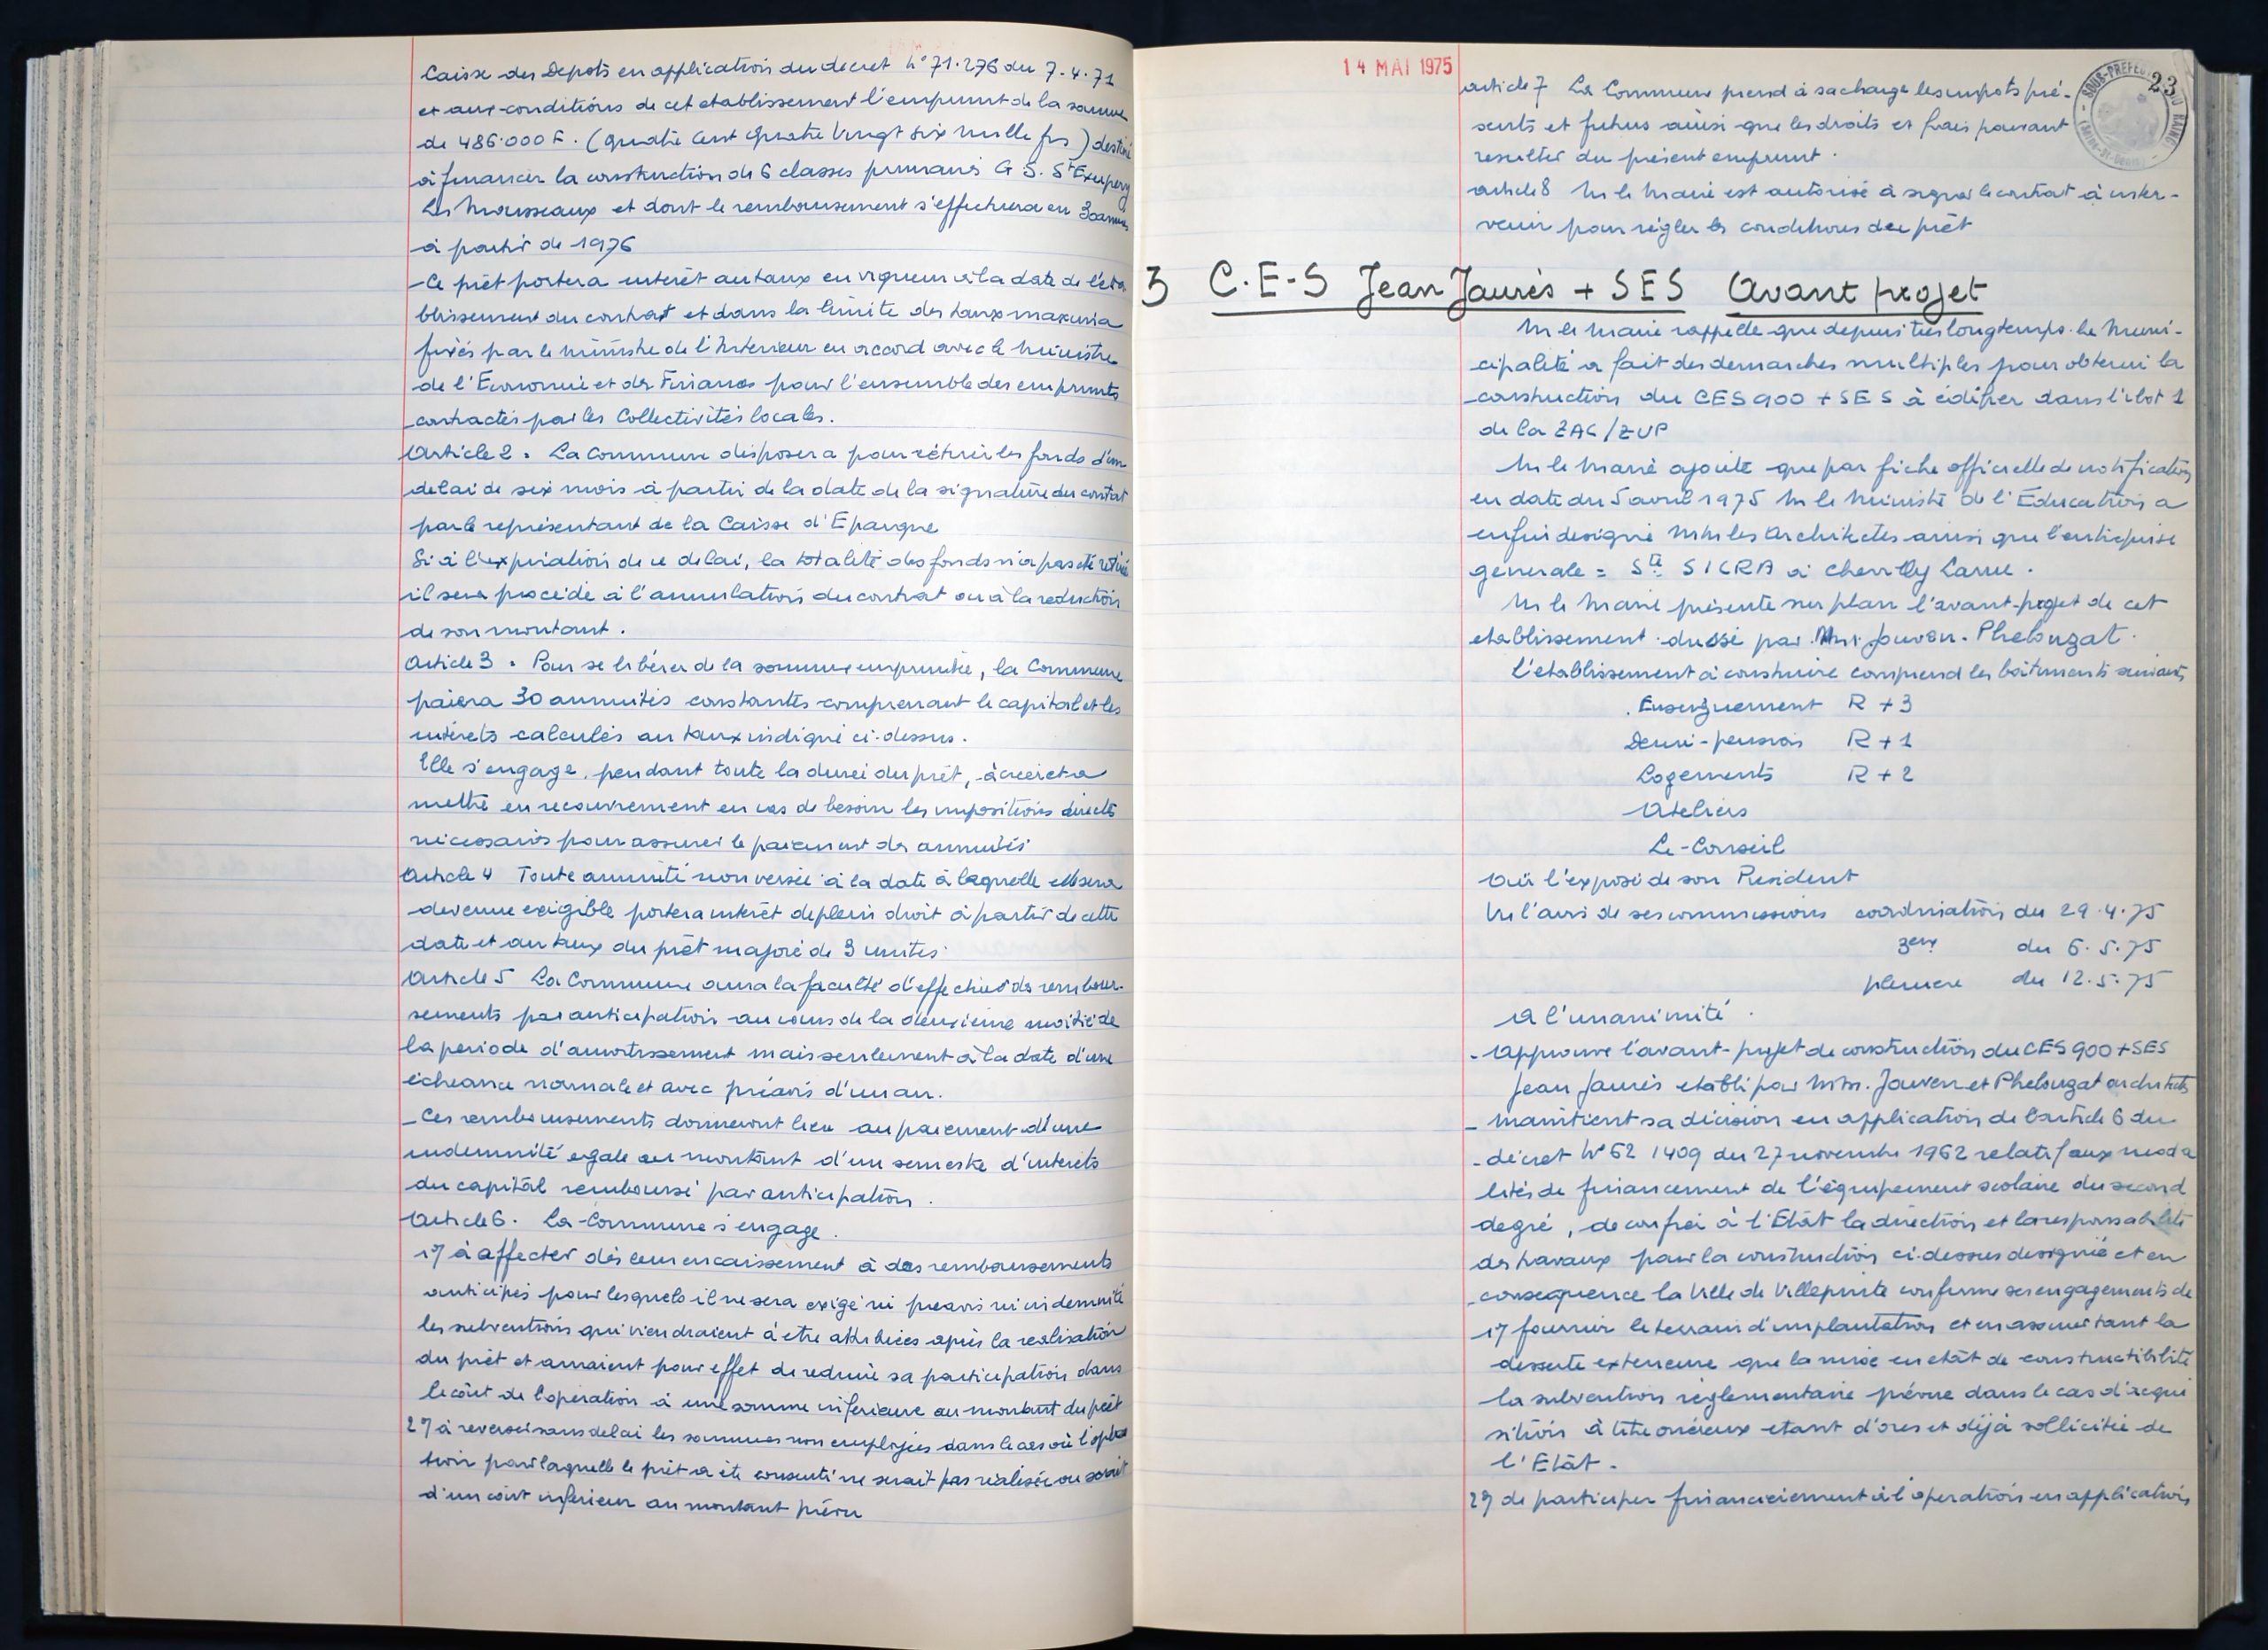 Caisse des Depots en application du decret n° 71.276 du 7.4.71
et aux conditions de cet etablissement l'emprunt de la somme
de 486.000 F. (quatre cent quatre vingt six mille frs) destiné
à financer la construction de 6 classes primaires G.S. St Exupery
Les Mousseaux et dont le remboursement s'effectuera en 30 années
à partir de 1976
- Ce prêt portera interêt au taux en vigueur à la date de l'éta
blissement du contrat et dans la limite des taux maxima
fixés par le ministre de l'Interieur en accord avec le Ministre
de l'Économie et des Finances pour l'ensemble des emprunts
contractés par les Collectivités locales.
Article 2. La Commune disposera pour rétirer les fonds d'un
delai de six mois à partir de la date de la signature du contrat
par le représentant de la Caisse d'Epargne
Si à l'expiration de ce delai, la totalité des fonds n'a pas été retirée
il sera procédé à l'annulation du contrat ou à la reduction
de son montant.
Article 3. Pour se libérer de la somme empruntée, la Commune
paiera 30 annuités constantes comprenant le capital et les
intérets calculés au taux indiqué ci-dessus.
Elle s'engage, pendant toute la durée du prêt, à créer et a
mettre en recouvrement en cas de besoin les impositions directes
nécessaires pour assurer le paiement des annuités
Article 4 Toute annuité non versée à la date à laquelle elle sera
devenue exigible portera interêt de plein droit à partir de cette
date et au taux du prêt majoré de 3 unités
Article 5 La Commune aura la faculté d'effectuer des rembour-
sements par anticipation au cours de la deuxième moitié de
la periode d'amortissement mais seulement à la date d'une
écheance normale et avec préavis d'un an.
- Ces remboursements donneront lieu au paiement d'une
indemnité egale au montant d'un semestre d'interêts
du capital remboursé par anticipation.
Article 6. La Commune s'engage.
1°/ à affecter dès leur encaissement à des remboursements
anticipés pour lesquels il ne sera exigé ni preavis ni indemnité
les subventions qui viendraient à etre attribuées après la realisation
du prêt et auraient pour effet de reduire sa participation dans
le coût de l'operation à une somme inferieure au montant du prêt
2°/ à reverser sans delai les sommes non employées dans le cas où l'opéra
tion pour laquelle le prêt a été consenti ne serait pas réalisée ou serait
d'un coût inferieur au montant prévu
14 MAI 1975
SOUS-PREFECTURE DU RAINCY
23
article 7 La Commune prend à sa charge les impots pré-
sents et futurs ainsi que les droits et frais pouvant
resulter du présent emprunt.
article 8 M le Maire est autorisé à signer le contrat à inter-
venir pour régler les conditions du prêt
3 C.E-S Jean Jaurès + SES Avant projet
M le Maire rappelle que depuis très longtemps la Muni-
cipalité a fait des demarches multiples pour obtenir la
construction du CES 900 + SES à édifier dans l'ilot 1
de la ZAC/ZUP
M le Maire ajoute que par fiche officielle de notification
en date du 5 avril 1975 M le Ministre de l'Éducation a
enfin designé MM les Architectes ainsi que l'entreprise
generale = Sté SICRA à Chevilly Larue.
M le Maire présente sur plan l'avant-projet de cet
etablissement dressé par MM. Jouven. Phelouzat.
L'etablissement à construire comprend les bâtiments suivants
. Enseignement R + 3
Demi-pension R + 1
Logements R + 2
Ateliers
Le Conseil
Ouï l'exposé de son President
Vu l'avis de ses commissions coordination du 29.4.75
du 6.5.75
pleniere du 12.5.75
A l'unanimité.
- Approuve l'avant-projet de construction du CES 900 + SES
Jean Jaurès etabli par MM. Jouven et Phelouzat architectes
- maintient sa décision en application de l'article 6 du
- décret N° 62 1409 du 27 novembre 1962 relatif aux moda
lités de financement de l'équipement scolaire du second
degré, de confier à l'Etât la direction et la responsabilité
des travaux pour la construction ci-dessus designée et en
consequence la Ville de Villepinte confirme ses engagements de
1°/ fournir le terrain d'implantation et en assurer tant la
desserte exterieure que la mise en etât de constructibilité
la subvention règlementaire prévue dans le cas d'acqui
sition à titre onéreux etant d'ores et déjà sollicitée de
l'Etât.
2°/ de participer financierement à l'operation en application